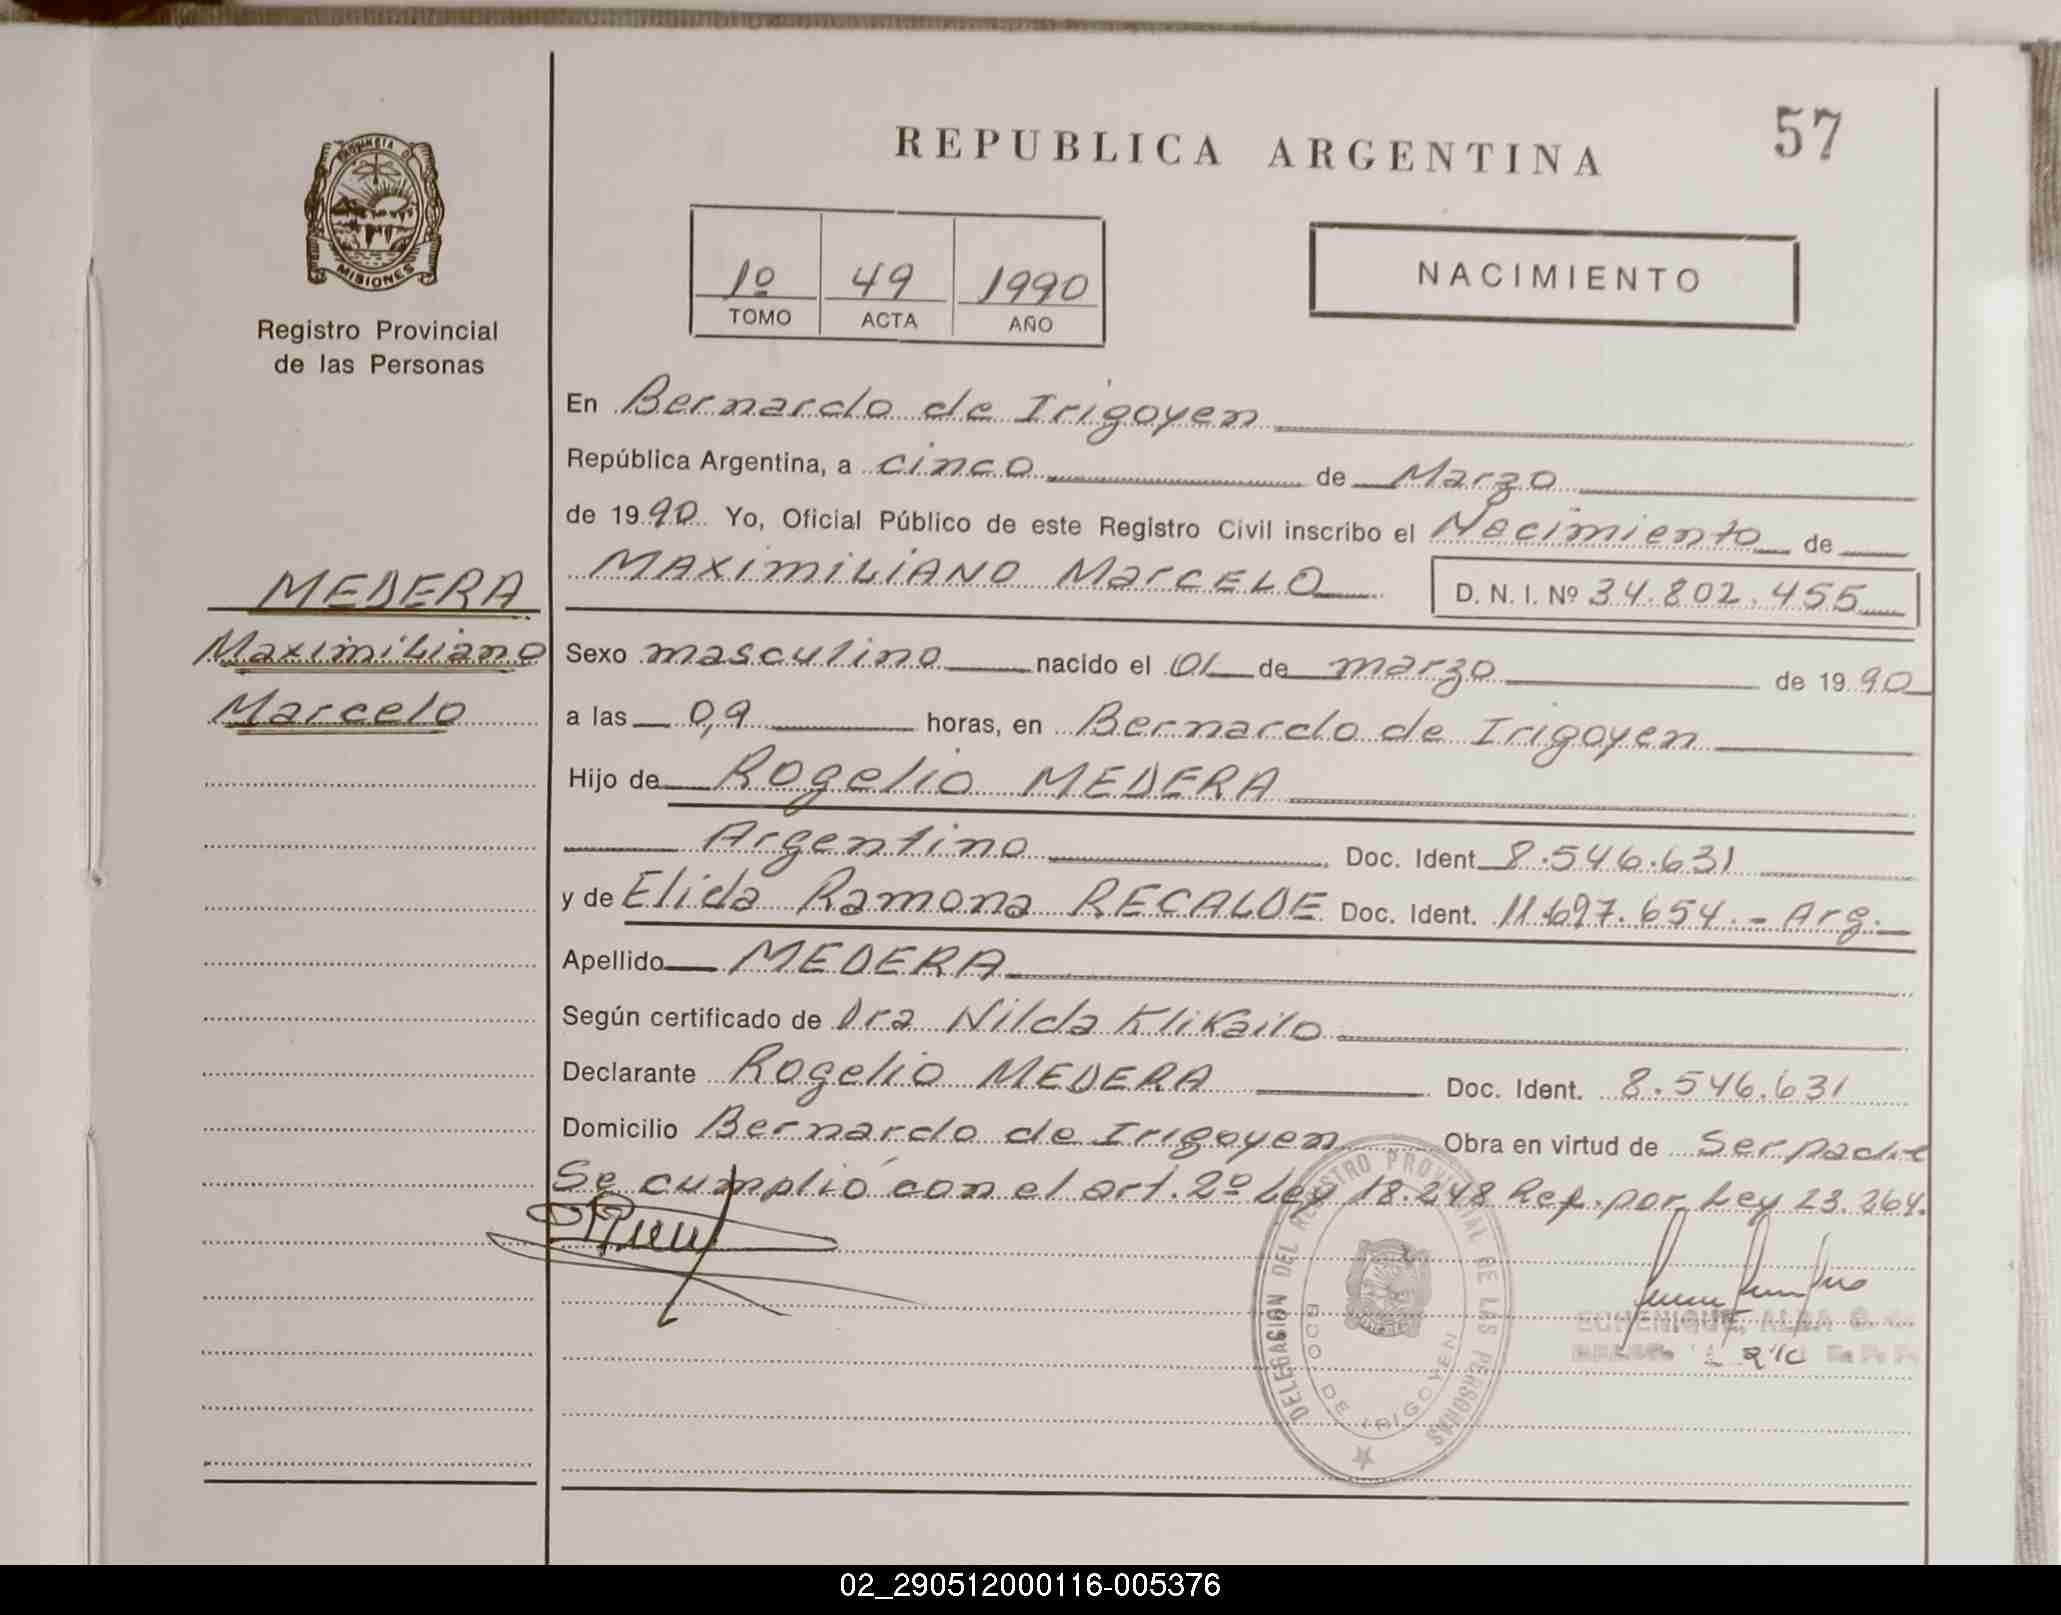 REPUBLICA ARGENTINA
57
PROVINCIA D
MISIONES
Registro Provincial
de las Personas
1º 49 1990
TOMO ACTA AÑO
NACIMIENTO
En Bernardo de Irigoyen
República Argentina, a cinco de Marzo
de 1990 Yo, Oficial Público de este Registro Civil inscribo el Nacimiento de
MAXIMILIANO MARCELO D. N. I. Nº 34.802.455
MEDERA
Maximiliano
Marcelo
Sexo masculino nacido el 01 de marzo de 1990
a las 0,9 horas, en Bernardo de Irigoyen
Hijo de Rogelio MEDERA
Argentino Doc. Ident 8.546.631
y de Elida Ramona RECALDE Doc. Ident. 11.697.654.- Arg.
Apellido MEDERA
Según certificado de Dra Nilda Klikailo
Declarante Rogelio MEDERA Doc. Ident. 8.546.631
Domicilio Bernardo de Irigoyen Obra en virtud de Ser padre
Se cumplió con el art. 2º Ley 18.248 Ref. por Ley 23.264.
DELEGACION DEL REGISTRO PROVINCIAL DE LAS PERSONAS
BDO DE IRIGOYEN
ECHENIQUE, ALBA
02_290512000116-005376